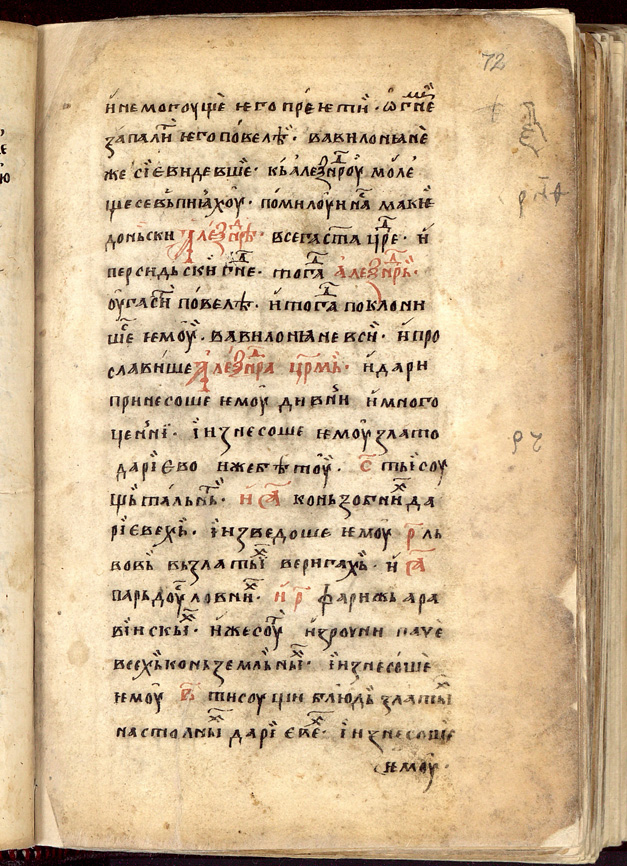 72
и҆немогѹще ѥго прѣѥти· ѡ҆гнѥмⷩ
запалити ѥго повелѣ· вавилонꙗне
же сїе видевше· кь алеѯⷣнроу моле
ще се вьпиꙗхоу· помилоуи насⷭ макѥ
доньски Алеѯⷣнре· всега ста црⷣе· и҆
персидьски гнⷣе· тогаⷣ алеѯⷣнрь·
оугасити повелѣ· и҆тогаⷣ поклони
шеⷭ ѥмоу· вавилонꙗне вси· и҆про
славише Алеѯⷣнра црⷭмь· и҆дари
принесоше ѥмоу дивни и҆много
ценни· їизнесоше ѥмоу злато
дарїево и҆жебѣ тоу· с҃ тысоу
щь тальнⷮь· и҆ с҃а коньзобнⷯи да
рїевехь· їизведоше ѥмоу р҃ ль
вовь вьзлатыⷯ веригахь· и҆ г҃а
парьдоу ловниⷯ· и҆ р҃ фарижь ара
вїискыⷯ· и҆жесоуⷮ и҆зроучни паче
всехьконьземльныⷯ· їизнесоше
ѥмоу в҃ тисоущи блюдь златыⷯ
настолныⷯ дарїевеⷯ· їизнесоше
ѥмоу·